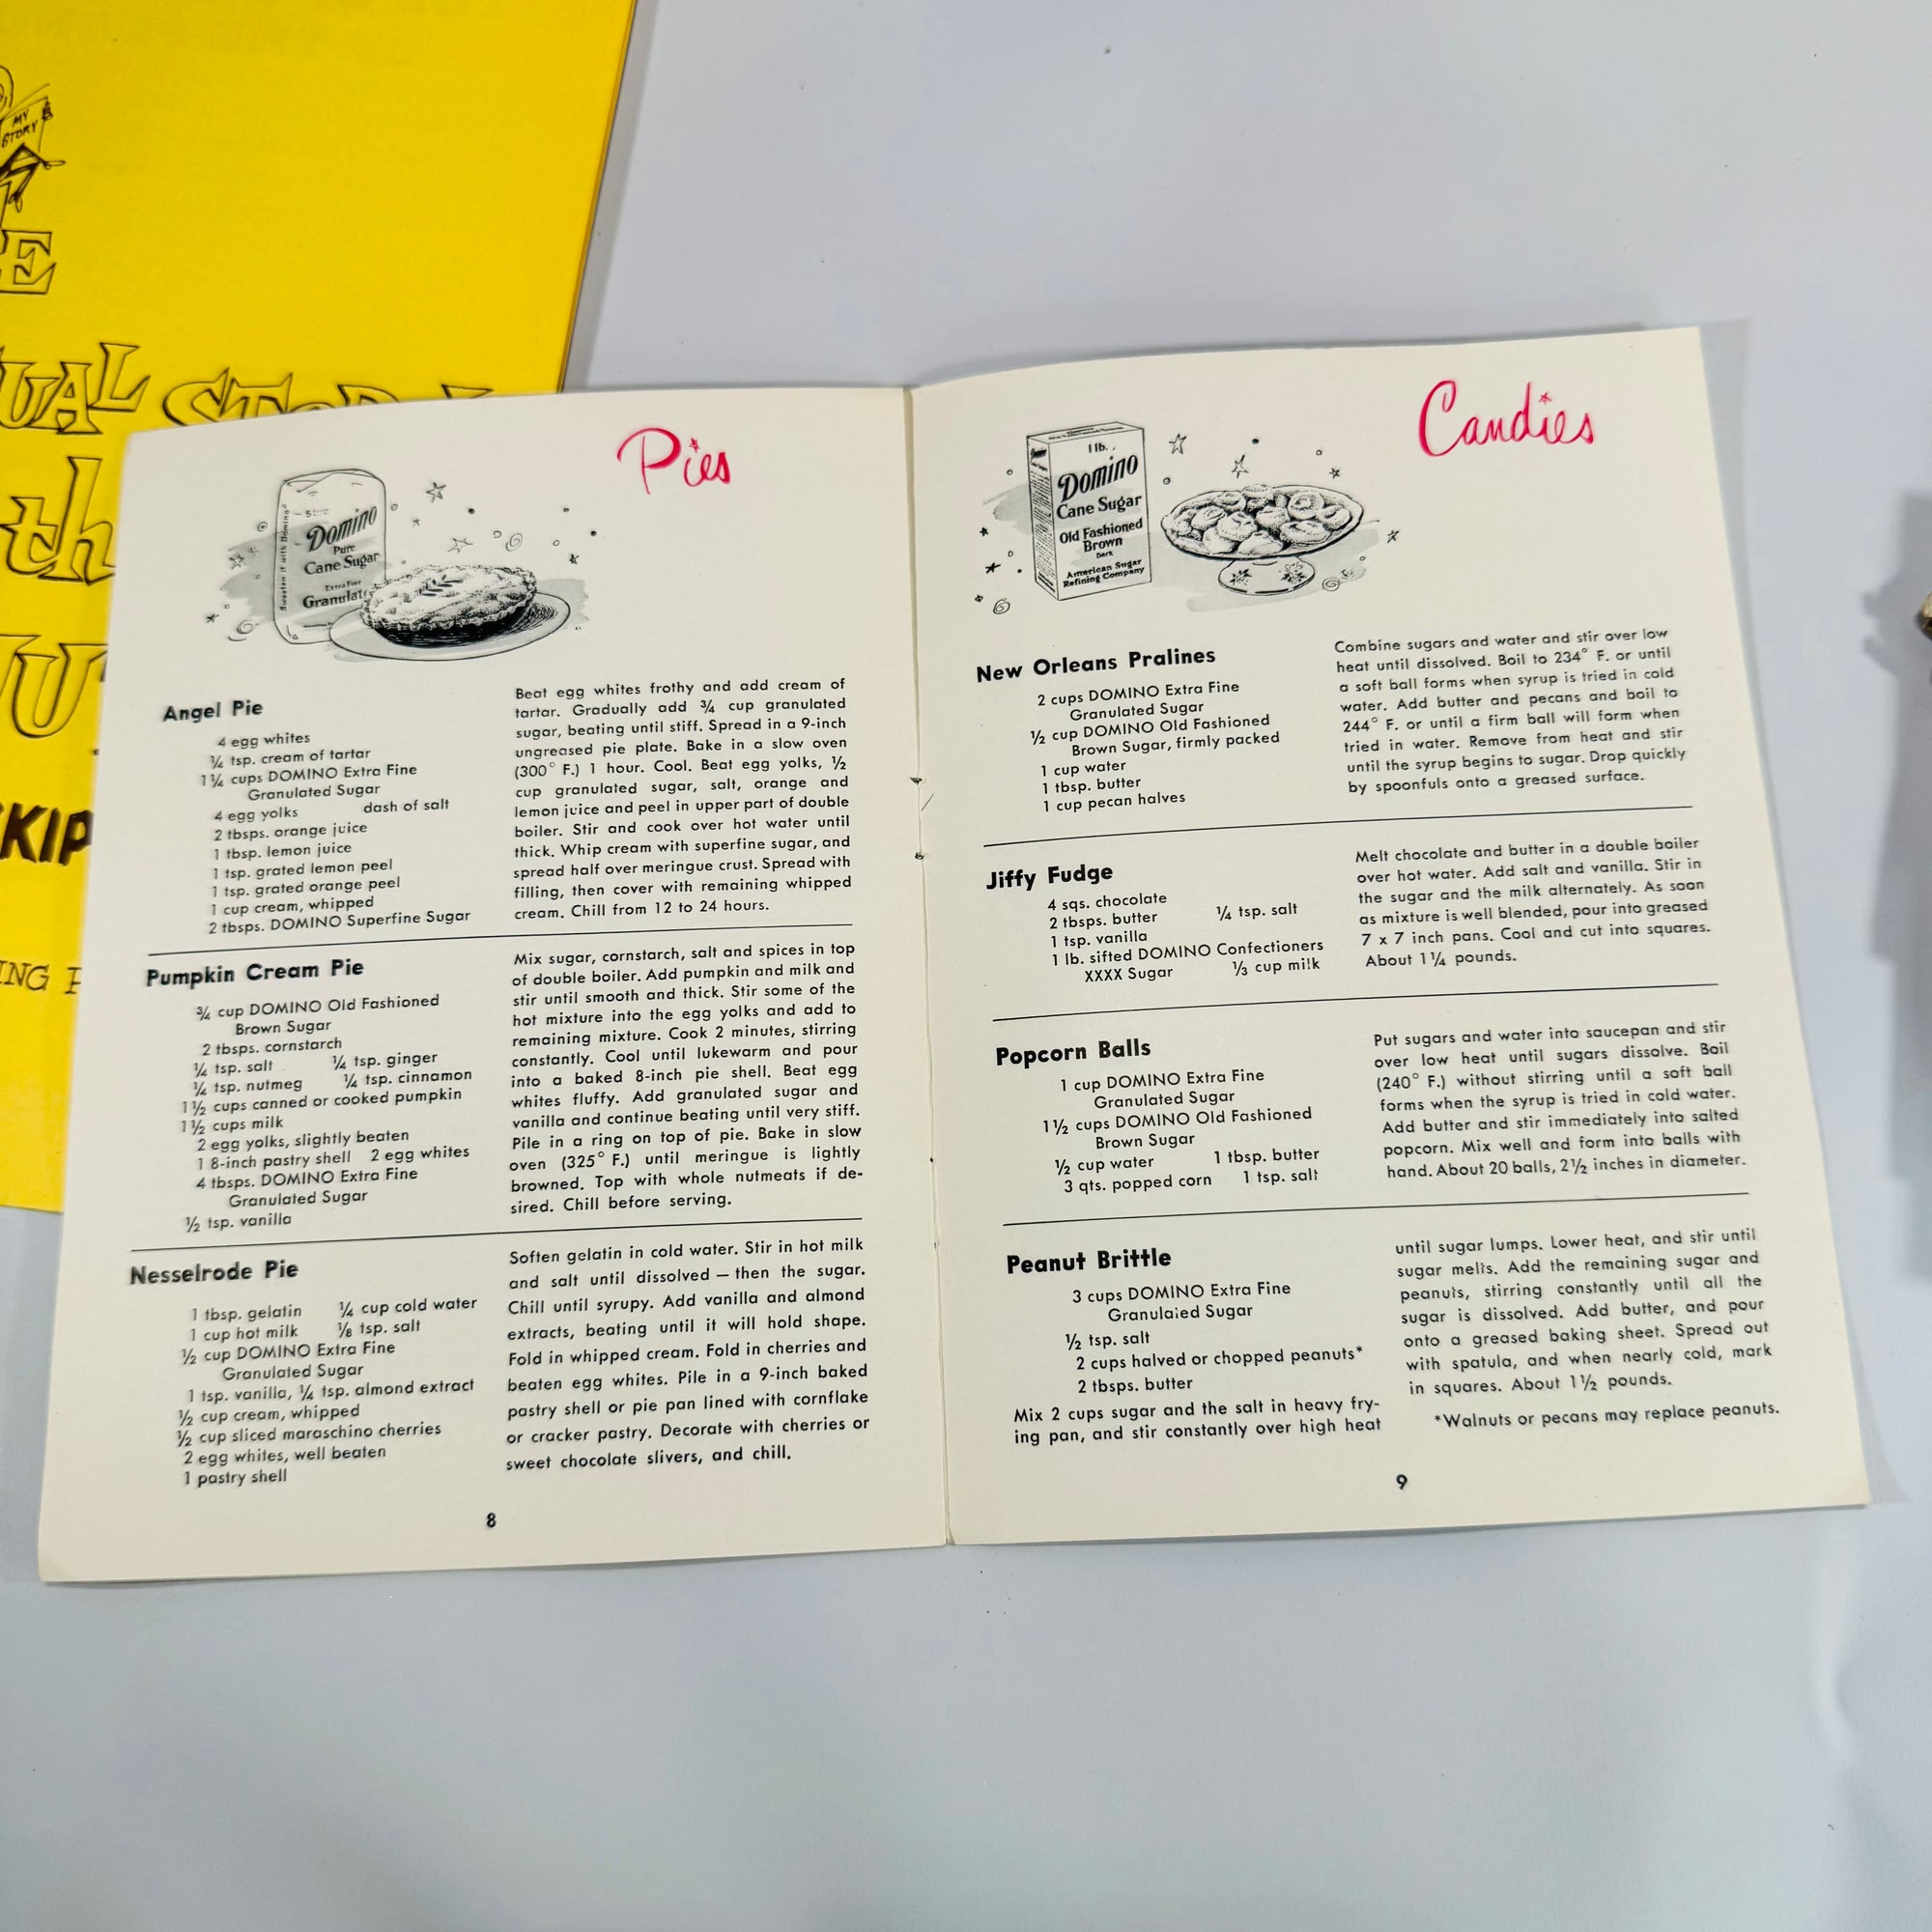 MY
STORY
E
UAL STORY
th
KIP
ING
Pies
Domino
Pure
Cane Sugar
Extra Fine
Granulat
Sweeten it with Domino
Angel Pie
4 egg whites
¼ tsp. cream of tartar
1¼ cups DOMINO Extra Fine
Granulated Sugar
4 egg yolks dash of salt
2 tbsps. orange juice
1 tbsp. lemon juice
1 tsp. grated lemon peel
1 tsp. grated orange peel
1 cup cream, whipped
2 tbsps. DOMINO Superfine Sugar
Beat egg whites frothy and add cream of
tartar. Gradually add ¾ cup granulated
sugar, beating until stiff. Spread in a 9-inch
ungreased pie plate. Bake in a slow oven
(300° F.) 1 hour. Cool. Beat egg yolks, ½
cup granulated sugar, salt, orange and
lemon juice and peel in upper part of double
boiler. Stir and cook over hot water until
thick. Whip cream with superfine sugar, and
spread half over meringue crust. Spread with
filling, then cover with remaining whipped
cream. Chill from 12 to 24 hours.
Pumpkin Cream Pie
¾ cup DOMINO Old Fashioned
Brown Sugar
2 tbsps. cornstarch
¼ tsp. salt ¼ tsp. ginger
¼ tsp. nutmeg ¼ tsp. cinnamon
1½ cups canned or cooked pumpkin
1½ cups milk
2 egg yolks, slightly beaten
1 8-inch pastry shell 2 egg whites
4 tbsps. DOMINO Extra Fine
Granulated Sugar
½ tsp. vanilla
Mix sugar, cornstarch, salt and spices in top
of double boiler. Add pumpkin and milk and
stir until smooth and thick. Stir some of the
hot mixture into the egg yolks and add to
remaining mixture. Cook 2 minutes, stirring
constantly. Cool until lukewarm and pour
into a baked 8-inch pie shell. Beat egg
whites fluffy. Add granulated sugar and
vanilla and continue beating until very stiff.
Pile in a ring on top of pie. Bake in slow
oven (325° F.) until meringue is lightly
browned. Top with whole nutmeats if de-
sired. Chill before serving.
Nesselrode Pie
1 tbsp. gelatin ¼ cup cold water
1 cup hot milk ⅛ tsp. salt
½ cup DOMINO Extra Fine
Granulated Sugar
1 tsp. vanilla, ¼ tsp. almond extract
½ cup cream, whipped
½ cup sliced maraschino cherries
2 egg whites, well beaten
1 pastry shell
Soften gelatin in cold water. Stir in hot milk
and salt until dissolved — then the sugar.
Chill until syrupy. Add vanilla and almond
extracts, beating until it will hold shape.
Fold in whipped cream. Fold in cherries and
beaten egg whites. Pile in a 9-inch baked
pastry shell or pie pan lined with cornflake
or cracker pastry. Decorate with cherries or
sweet chocolate slivers, and chill.
8
Candies
1 lb.
Domino
Cane Sugar
Old Fashioned
Brown
Dark
American Sugar
Refining Company
New Orleans Pralines
2 cups DOMINO Extra Fine
Granulated Sugar
½ cup DOMINO Old Fashioned
Brown Sugar, firmly packed
1 cup water
1 tbsp. butter
1 cup pecan halves
Combine sugars and water and stir over low
heat until dissolved. Boil to 234° F. or until
a soft ball forms when syrup is tried in cold
water. Add butter and pecans and boil to
244° F. or until a firm ball will form when
tried in water. Remove from heat and stir
until the syrup begins to sugar. Drop quickly
by spoonfuls onto a greased surface.
Jiffy Fudge
4 sqs. chocolate
2 tbsps. butter ¼ tsp. salt
1 tsp. vanilla
1 lb. sifted DOMINO Confectioners
XXXX Sugar ⅓ cup milk
Melt chocolate and butter in a double boiler
over hot water. Add salt and vanilla. Stir in
the sugar and the milk alternately. As soon
as mixture is well blended, pour into greased
7 x 7 inch pans. Cool and cut into squares.
About 1¼ pounds.
Popcorn Balls
1 cup DOMINO Extra Fine
Granulated Sugar
1½ cups DOMINO Old Fashioned
Brown Sugar
½ cup water 1 tbsp. butter
3 qts. popped corn 1 tsp. salt
Put sugars and water into saucepan and stir
over low heat until sugars dissolve. Boil
(240° F.) without stirring until a soft ball
forms when the syrup is tried in cold water.
Add butter and stir immediately into salted
popcorn. Mix well and form into balls with
hand. About 20 balls, 2½ inches in diameter.
Peanut Brittle
3 cups DOMINO Extra Fine
Granulated Sugar
½ tsp. salt
2 cups halved or chopped peanuts*
2 tbsps. butter
Mix 2 cups sugar and the salt in heavy fry-
ing pan, and stir constantly over high heat
until sugar lumps. Lower heat, and stir until
sugar melts. Add the remaining sugar and
peanuts, stirring constantly until all the
sugar is dissolved. Add butter, and pour
onto a greased baking sheet. Spread out
with spatula, and when nearly cold, mark
in squares. About 1½ pounds.
*Walnuts or pecans may replace peanuts.
9